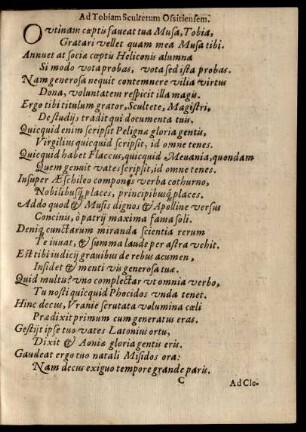 Ad Tobiam Scultetum Ositiensem.
O utinam cœptis faveat tua Musa, Tobia,
Gratari vellet quam mea Musa tibi.
Annuet at socia cœptis Heliconis alumna
Si modo vota probas, vota sed ista probas.
Nam generosa nequit contemnere vilia virtus
Dona, voluntatem respicit illa magis.
Ergo tibi titulum grator, Scultete, Magistri,
De studijs tradit qui documenta tuis.
Quicquid enim scripsit Peligna gloria gentis,
Virgilius quicquid scripsit, id omne tenes.
Quicquid habet Flaccus, quicquid Mevania, quondam
Quem genuit vates scripsit, id omne tenes.
Insuper Æschileo componis verba cothurno,
Nobilibusq; places, principibusq; places.
Addo quod & Musis dignos & Apolline versus
Concinis, ô patrij maxima fama soli.
Deniq; cunctarum miranda scientia rerum
Te iuvat, & summa laude per astra vehit.
Est tibi iudicij gravibus de rebus acumen,
Insidet & menti vis generosa tuæ.
Quid multis? vno complectar vt omnia verbo,
Tu nosti quicquid Phocidos vnda tenet.
Hinc decus, Vraniæ scrutata volumina cœli
Prædixit primum cum generatus eras.
Gestijt ipse tuo vates Latonius ortu,
Dixit & Aoniæ gloria gentis eris.
Gaudeat ergo tuo natali Misidos ora:
Nam decus exiguo tempore grande paris.
C
Ad Clo-